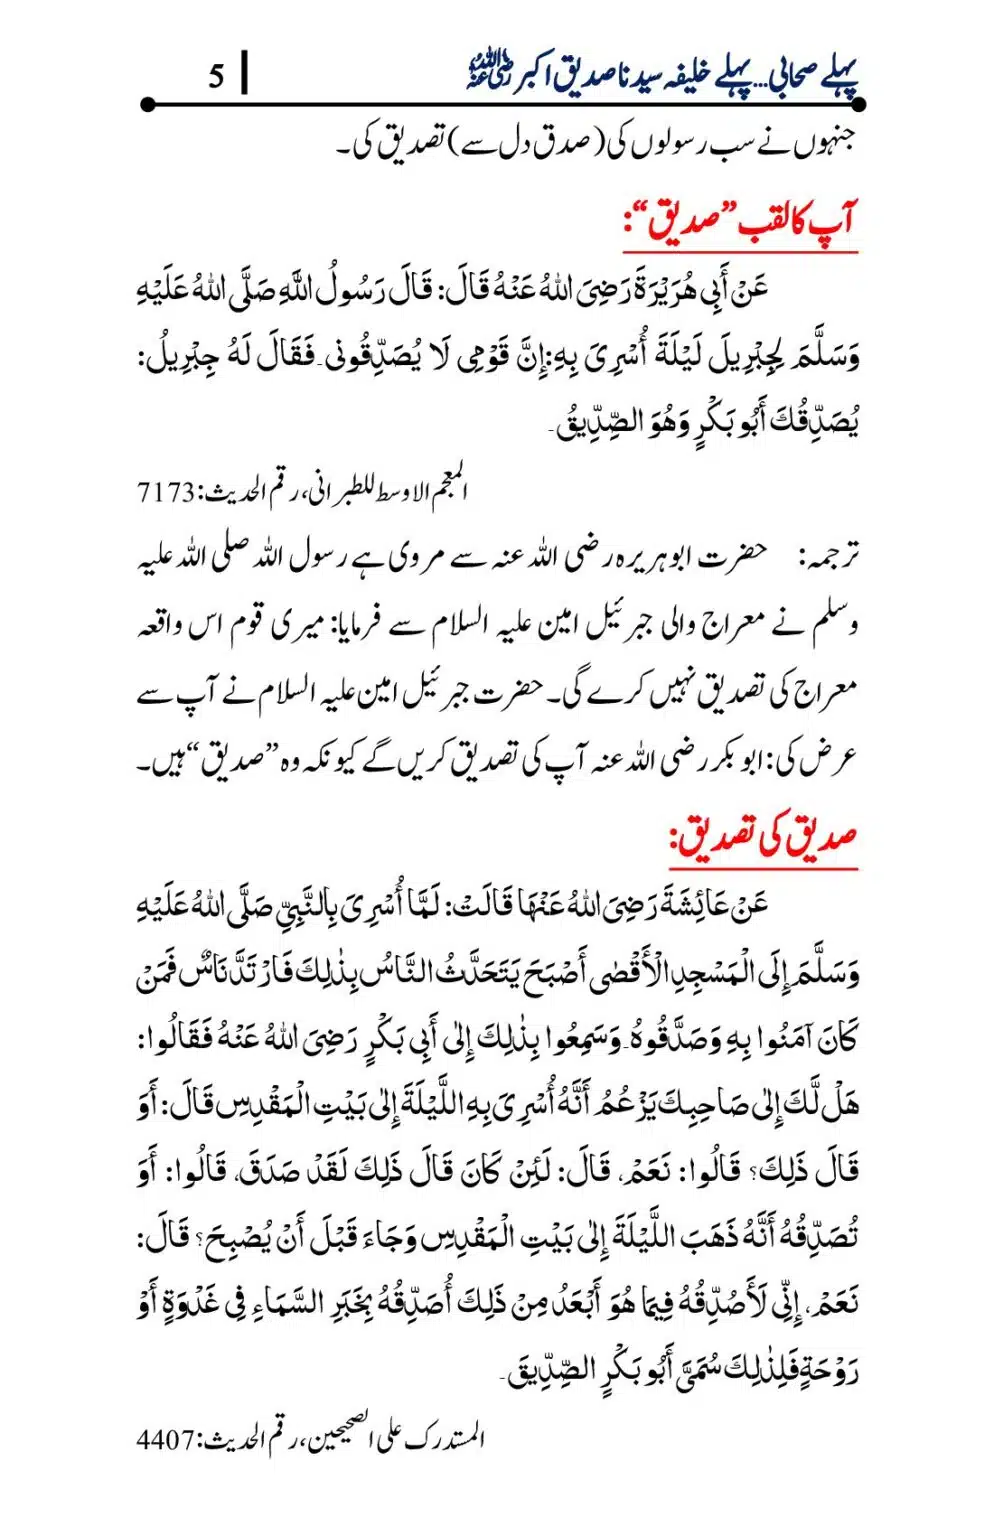 پہلے صحابی...پہلے خلیفہ سیدنا صدیق اکبر رضی اللہ عنہ | 5
جنہوں نے سب رسولوں کی (صدق دل سے) تصدیق کی۔
آپ کا لقب ”صدیق“:
عَنْ أَبِي هُرَيْرَةَ رَضِيَ اللهُ عَنْهُ قَالَ: قَالَ رَسُولُ اللهِ صَلَّى اللهُ عَلَيْهِ
وَسَلَّمَ لِجِبْرِيلَ لَيْلَةَ أُسْرِيَ بِهِ:إِنَّ قَوْمِي لَا يُصَدِّقُونِي۔فَقَالَ لَهُ جِبْرِيلُ:
يُصَدِّقُكَ أَبُو بَكْرٍ وَهُوَ الصِّدِّيقُ۔
المعجم الاوسط للطبرانی، رقم الحدیث:7173
ترجمہ: حضرت ابوہریرہ رضی اللہ عنہ سے مروی ہے رسول اللہ صلی اللہ علیہ
وسلم نے معراج والی جبرئیل امین علیہ السلام سے فرمایا: میری قوم اس واقعہ
معراج کی تصدیق نہیں کرے گی۔ حضرت جبرئیل امین علیہ السلام نے آپ سے
عرض کی: ابو بکر رضی اللہ عنہ آپ کی تصدیق کریں گے کیونکہ وہ ”صدیق“ ہیں۔
صدیق کی تصدیق:
عَنْ عَائِشَةَ رَضِيَ اللهُ عَنْهَا قَالَتْ: لَمَّا أُسْرِيَ بِالنَّبِيِّ صَلَّى اللهُ عَلَيْهِ
وَسَلَّمَ إِلَى الْمَسْجِدِ الْأَقْصٰى أَصْبَحَ يَتَحَدَّثُ النَّاسُ بِذٰلِكَ فَارْتَدَّ نَاسٌ فَمَنْ
كَانَ آمَنُوا بِهِ وَصَدَّقُوهُ۔وَسَمِعُوا بِذٰلِكَ إِلٰى أَبِي بَكْرٍ رَضِيَ اللهُ عَنْهُ فَقَالُوا:
هَلْ لَّكَ إِلٰى صَاحِبِكَ يَزْعُمُ أَنَّهُ أُسْرِيَ بِهِ اللَّيْلَةَ إِلٰى بَيْتِ الْمَقْدِسِ قَالَ: أَوَ
قَالَ ذَلِكَ؟ قَالُوا: نَعَمْ، قَالَ: لَئِنْ كَانَ قَالَ ذَلِكَ لَقَدْ صَدَقَ، قَالُوا: أَوَ
تُصَدِّقُهُ أَنَّهُ ذَهَبَ اللَّيْلَةَ إِلٰى بَيْتِ الْمَقْدِسِ وَجَاءَ قَبْلَ أَنْ يُصْبِحَ؟ قَالَ:
نَعَمْ، إِنِّي لَأَصُدِّقُهُ فِيمَا هُوَ أَبْعَدُ مِنْ ذَلِكَ أُصَدِّقُهُ بِخَبَرِ السَّمَاءِ فِي غَدْوَةٍ أَوْ
رَوْحَةٍ فَلِذٰلِكَ سُمَيَّ أَبُو بَكْرٍ الصِّدِّيقَ۔
المستدرک علی الصحیحین، رقم الحدیث:4407